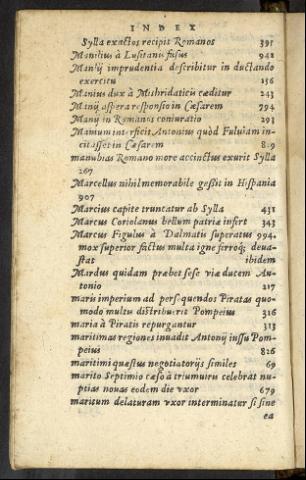 INDEX
Sylla exactos recipit Romanos 391
Manilius à Lusitanis fusus 942
Manij imprudentia describitur in ductando
exercitu 156
Manius dux à Mithridaticis cæditur 243
Manij aspera responsio in Cæsarem 794
Manij in Romanos coniuratio 293
Manium interficit Antonius quòd Fuluiam in-
citasset in Cæsarem 819
manubias Romano more accinctus exurit Sylla
267
Marcellus nihil memorabile gessit in Hispania
907
Marcius capite truncatur ab Sylla 431
Marcus Coriolanus bellum patriæ infert 343
Marcus Figulus à Dalmatis superatus 994,
mox superior factus multa igne ferroq; deua-
stat ibidem
Mardus quidam præbet sese viæ ducem An-
tonio 217
maris imperium ad persequendos Piratas quo-
modo multis distribuerit Pompeius 316
maria à Piratis repurgantur 313
maritimas regiones inuadit Antonij iussu Pom-
peius 826
maritimi quæstus negotiatorijs similes 69
marito Septimio cæso à triumuiris celebrat nu-
ptias nouas eodem die vxor 679
maritum delaturam vxor interminatur si sine
ea